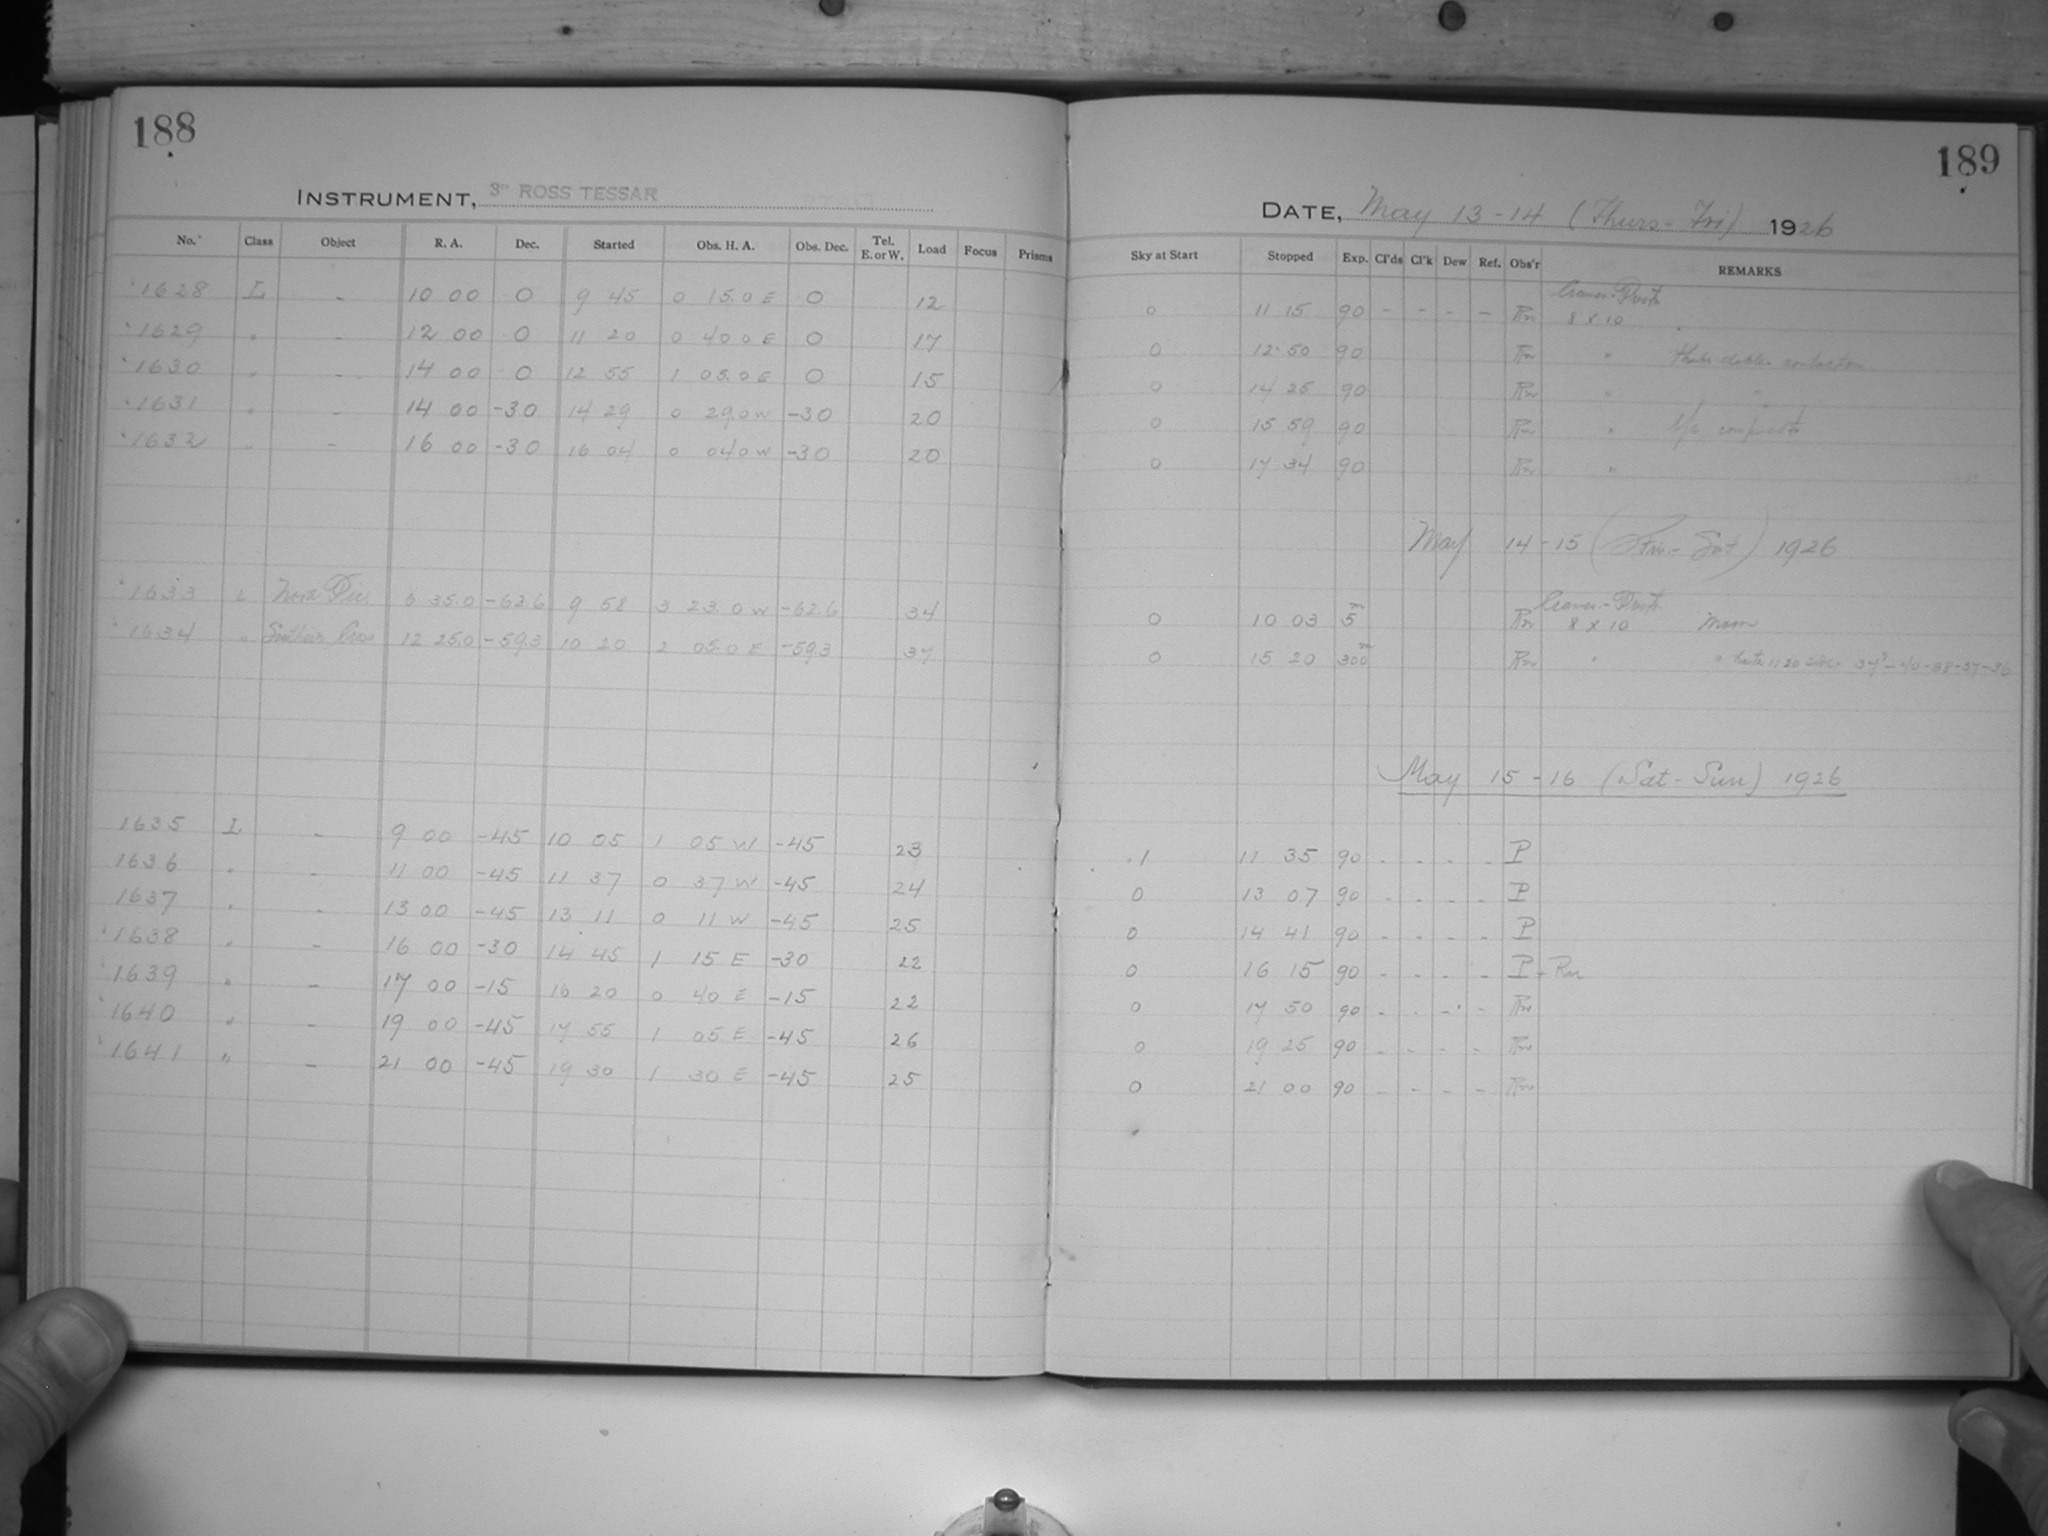 188
INSTRUMENT, 3" ROSS TESSAR
No. Class Object R. A. Dec. Started Obs. H. A. Obs. Dec. Tel. E. or W. Load Focus Prisms
1628 L - 10 00 0 9 45 0 15.0 E 0 12
1629 " - 12 00 0 11 20 0 40.0 E 0 17
1630 " - 14 00 0 12 55 1 05.0 E 0 15
1631 " - 14 00 -30 14 29 0 29.0 W -30 20
1632 " - 16 00 -30 16 04 0 04.0 W -30 20
1633 L Nova Pic. 6 35.0 -62.6 9 58 3 23.0 W -62.6 34
1634 " Southern Cross 12 25.0 -59.3 10 20 2 05.0 E -59.3 37
1635 L - 9 00 -45 10 05 1 05 W -45 23
1636 " - 11 00 -45 11 37 0 37 W -45 24
1637 " - 13 00 -45 13 11 0 11 W -45 25
1638 " - 16 00 -30 14 45 1 15 E -30 22
1639 " - 17 00 -15 16 20 0 40 E -15 22
1640 " - 19 00 -45 17 55 1 05 E -45 26
1641 " - 21 00 -45 19 30 1 30 E -45 25
189
DATE, May 13-14 (Thurs-Fri) 1926
Sky at Start Stopped Exp. Cl'ds Cl'k Dew Ref. Obs'r REMARKS
0 11 15 90 - - - - Rn 8 x 10
0 12 50 90 Rn "
0 14 25 90 Rn " "
0 15 59 90 Rn "
0 17 34 90 Rn "
May 14-15 (Fri-Sat) 1926
0 10 03 5m Rn 8 x 10 Moon
0 15 20 300m Rn " " 11 20 37-40-38-37-36
May 15-16 (Sat-Sun) 1926
.1 11 35 90 - - - - P
0 13 07 90 - - - - P
0 14 41 90 - - - - P
0 16 15 90 - - - - P-Rn
0 17 50 90 - - - - Rn
0 19 25 90 - - - - Rn
0 21 00 90 - - - - Rn